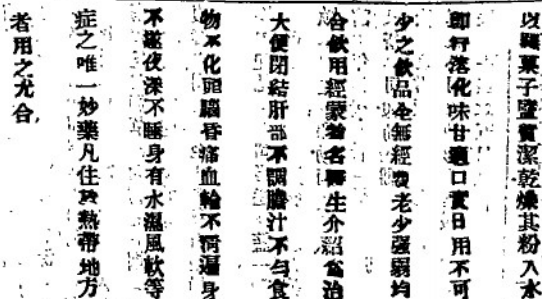 以羅菓子鹽質潔乾燥其粉入水
即行落化味甘適口實日用不可
少之飲品無經老少强弱均
合飲用經蒙著名醫生介紹爲治
大便閉結肝部不調膽汁不勻食
物不化頭腦昏痛血輪不遍身
不遂夜深不睡身有水濕風軟等
症之唯一妙藥凡住於熱帶地方
者用之尤合,